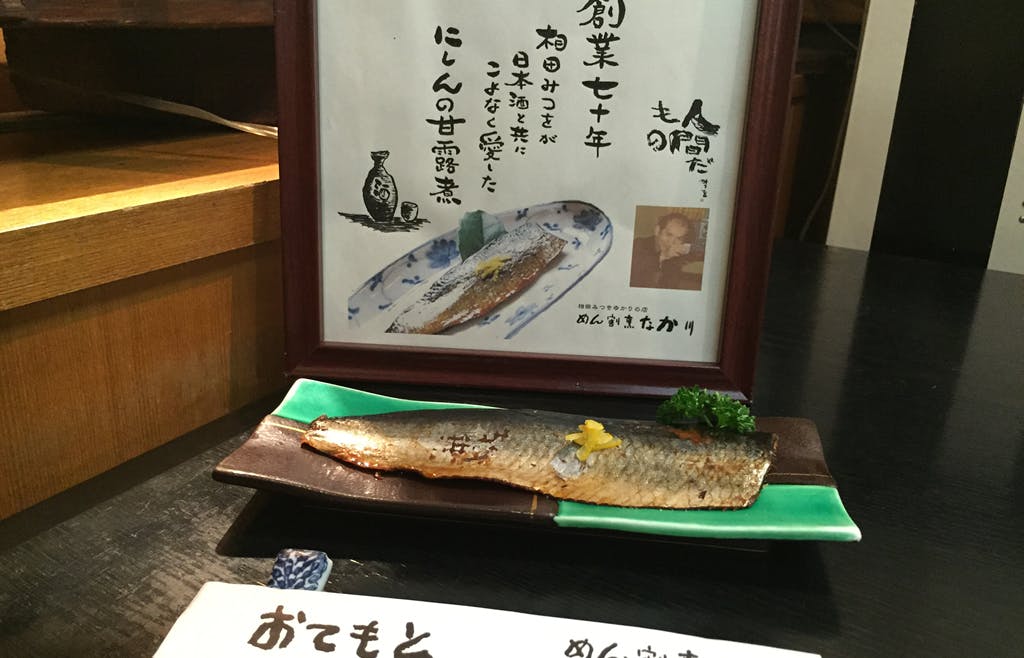 創業七十年
相田みつをが
日本酒と共に
こよなく愛した
にしんの甘露煮
人間だ
もの
みつを
酒
相田みつをゆかりの店
めん割烹 なか川
おてもと
めん割烹